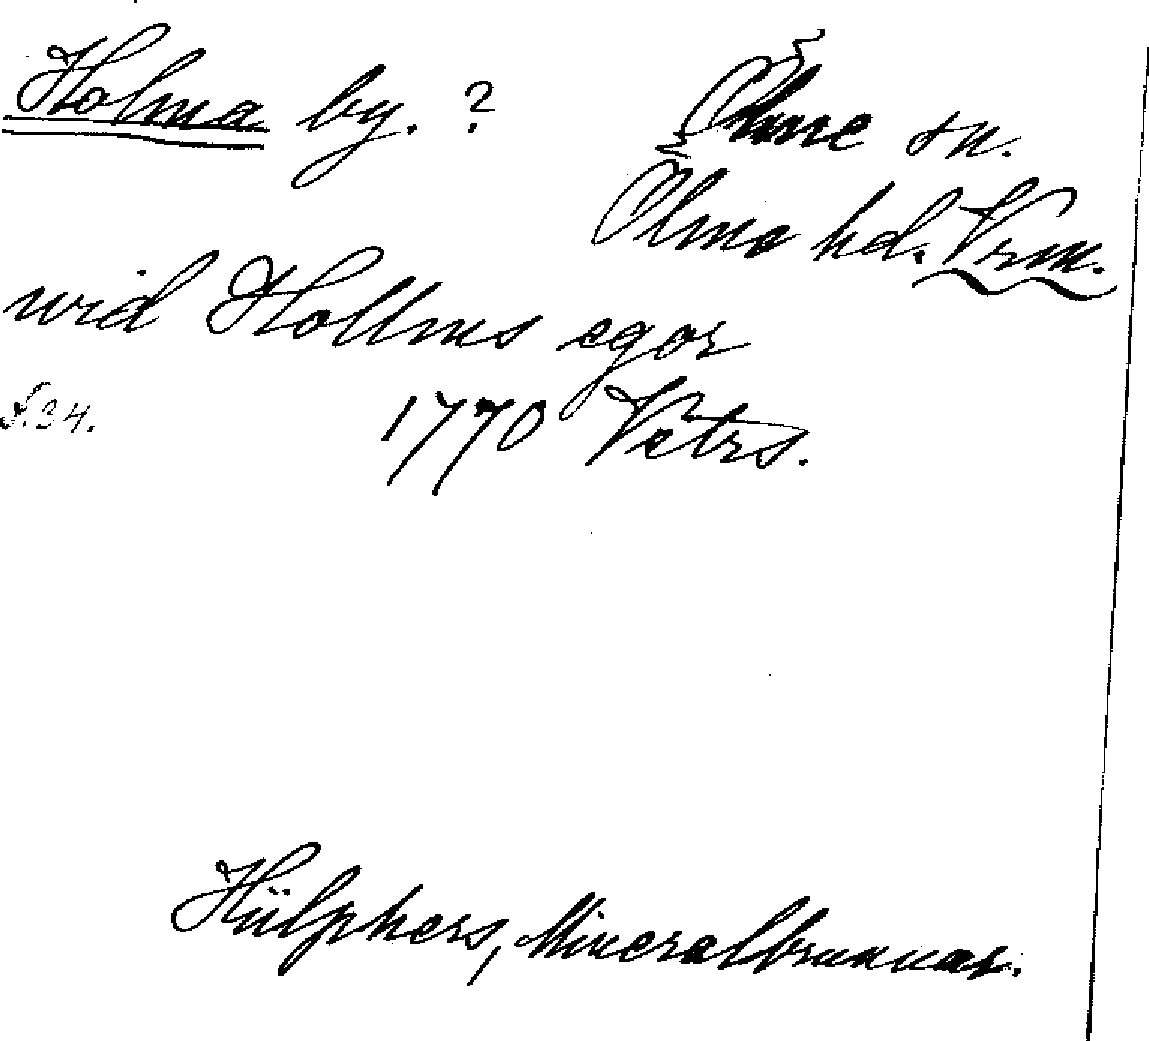 Holma by. ? Ölme sn.
Ölme hd. Vrm.
wid Hollms egor
S. 34. 1770 Vetrs.
Hülphers, Mineralbrunnar.